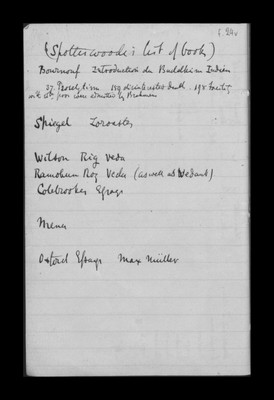 f. 29v
(Spotteswoode's list of books)
Bournouf Introduction du Buddhism Indien
37. Proselytism 159 disinterested death . 198 Society,
with poor sons admitted by Brahman
Spiegel Zoroaster
Wilson Rig Veda
Ramohun Roy Vedas (as well as Vedant)
Colebrookes Essays
Menu
Oxford Essays Max Müller